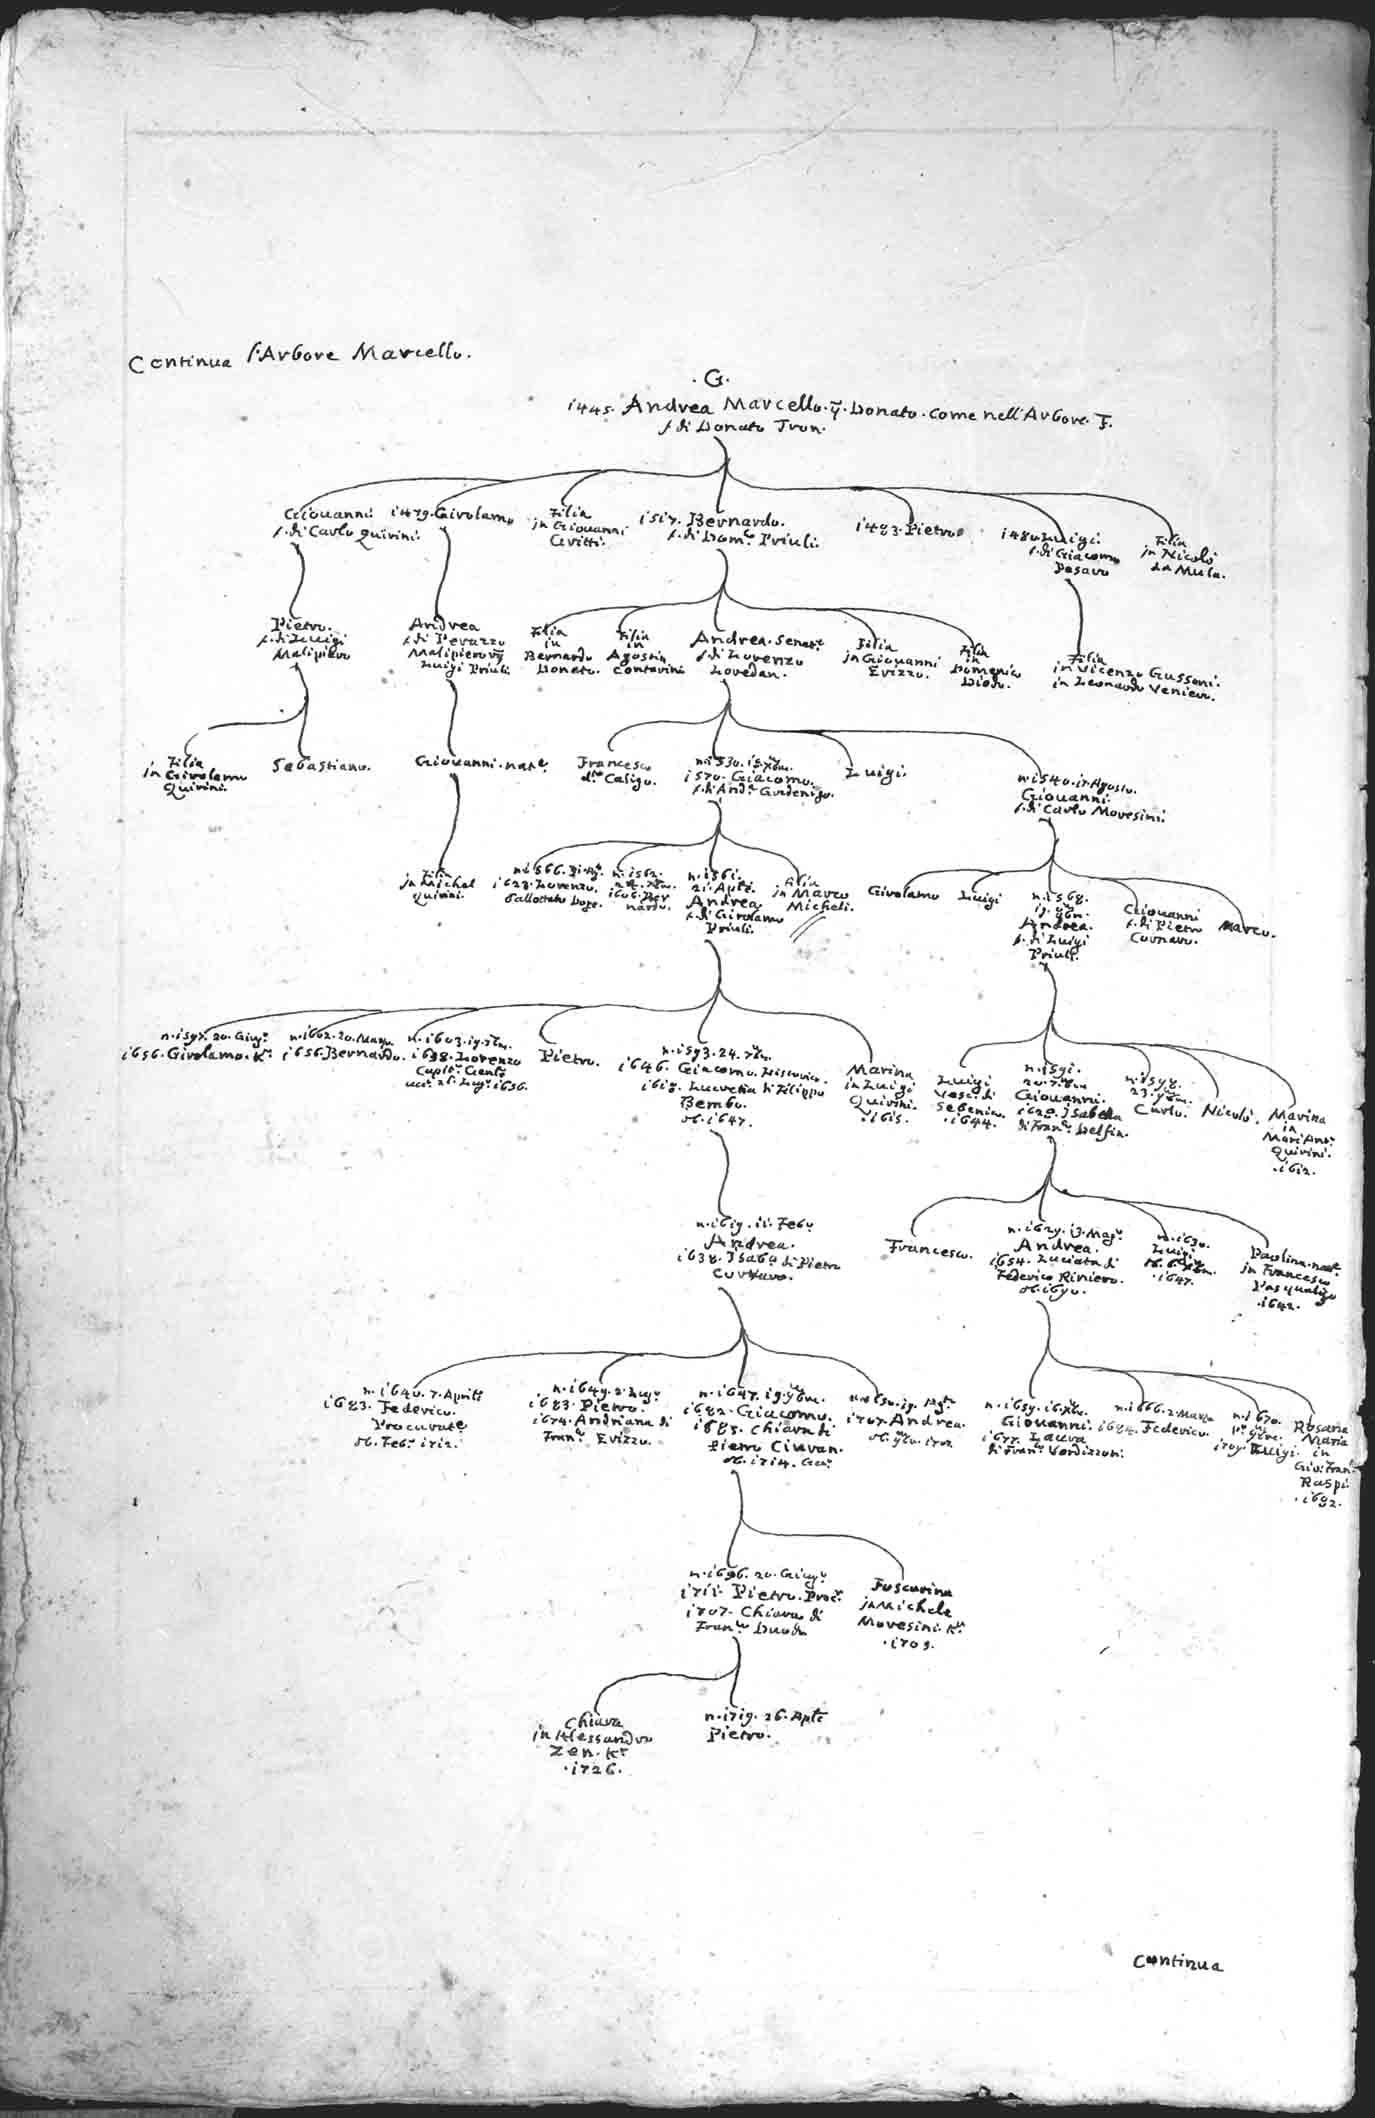 Continua l'Arbore Marcello.
.G.
1445. Andrea Marcello. q. Donato. come nell'Arbore. F.
f. di Donato Tron.
Giouanni
f. di Carlo Quirini.
1479. Girolamo
Filia
in Giouanni
Gritti.
1517. Bernardo.
f. di Dom.co Priuli.
1483. Pietro
1480. Luigi.
f. di Giacomo
Pesaro
Filia
in Nicolò
da Mula.
Pietro.
f. di Luigi
Malipiero
Andrea
f. di Perazzo
Malipiero
Luigi Priuli.
Filia
in
Bernardo
Donato.
Filia
in
Agostin
Contarini
Andrea. Senat.r
f. di Lorenzo
Loredan.
Filia
in Giouanni
Erizzo.
Filia
in
Domenico
Diedo.
Filia
in Vicenzo Gussoni.
in Leonardo Venier.
Filia
in Girolamo
Quirini.
Sebastiano.
Giouanni. nat.e
Francesco
d.o Caligo.
n. 1530. 15. Xbre.
1570. Giacomo.
f. di And.a Gradenigo.
Luigi.
n. 1540. 17. Agosto.
Giouanni.
f. di Carlo Moresini.
Filia
in Michel
Quirini.
1623. Lorenzo.
ballottato Doge.
n. 1562.
1606. Ber
nardo.
n. 1561.
21. Apl.e
Andrea
f. di Girolamo
Priuli.
Filia
in Marco
Micheli.
Girolamo
Luigi
n. 1568.
Andrea.
f. di Luigi
Priuli.
Giouanni
f. di Pietro
Cornaro.
Marco.
n. 1597. 20. Giug.o
1656. Girolamo. K.r
n. 1602. 20. Marzo
1656. Bernardo.
n. 1603. 19. 7bre.
1638. Lorenzo
Capit.o Gen.le
ucc. 26. Lug.o 1656.
Pietro.
n. 1593. 24. 7bre
1646. Giacomo. Historico.
1618. Lucretia di Filippo
Bembo.
ob. 1647.
Marina
in Luigi
Quirini.
.1615.
Luigi
Vesc. di
Sebenico.
.1644.
n. 1591.
Giouanni.
1620. Isabella
di Fran.co Delfin.
n. 1598.
Carlo.
Nicolò.
Marina
in
Marc'Ant.o
Quirini.
.1612.
n. 1619. 11. Feb.o
Andrea.
1638. Isab.a di Pietro
Corraro.
Francesco.
n. 1629. 13. Mag.o
Andrea.
1654. Luciata di
Federico Riniero.
ob. 1690.
n. 1630.
Luigi
.1647.
Paolina. nat.e
in Francesco
Pasqualigo
.1642.
n. 1640. 7. Aprile
1683. Federico.
Procurat.e
ob. Feb.o 1712.
n. 1649. 2. Lug.o
1683. Pietro.
1674. Andriana di
Fran.co Erizzo.
n. 1647. 19. 9bre.
1682. Giacomo.
1685. Chiara di
Pietro Ciuran.
ob. 1714.
1707. Andrea.
n. 1659. 16. Xbre.
Giouanni.
1677. Laura
di Fran.co Verdizzoni.
n. 1666. 2. Marzo
1684. Federico.
n. 1670.
Luigi.
Rosaria
Maria
in
Gio: Fran.co
Raspi.
.1692.
n. 1696. 20. Giug.o
1711. Pietro. Proc.r
1707. Chiara di
Fran.co Duodo
Foscarina
in Michele
Moresini. K.r
.1709.
Chiara
in Alessandro
Zen. K.r
.1726.
n. 1719. 26. Apl.e
Pietro.
Continua